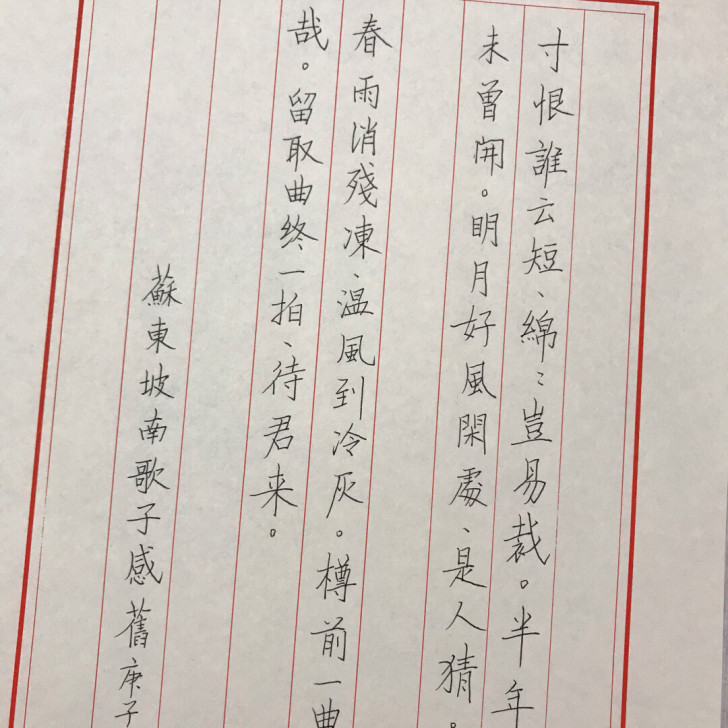 寸恨誰云短、綿〻豈易裁。半年
未曾開。明月好風閑處、是人猜。
春雨消殘凍、温風到冷灰。樽前一曲
哉。留取曲终一拍、待君来。
蘇東坡南歌子感舊庚子